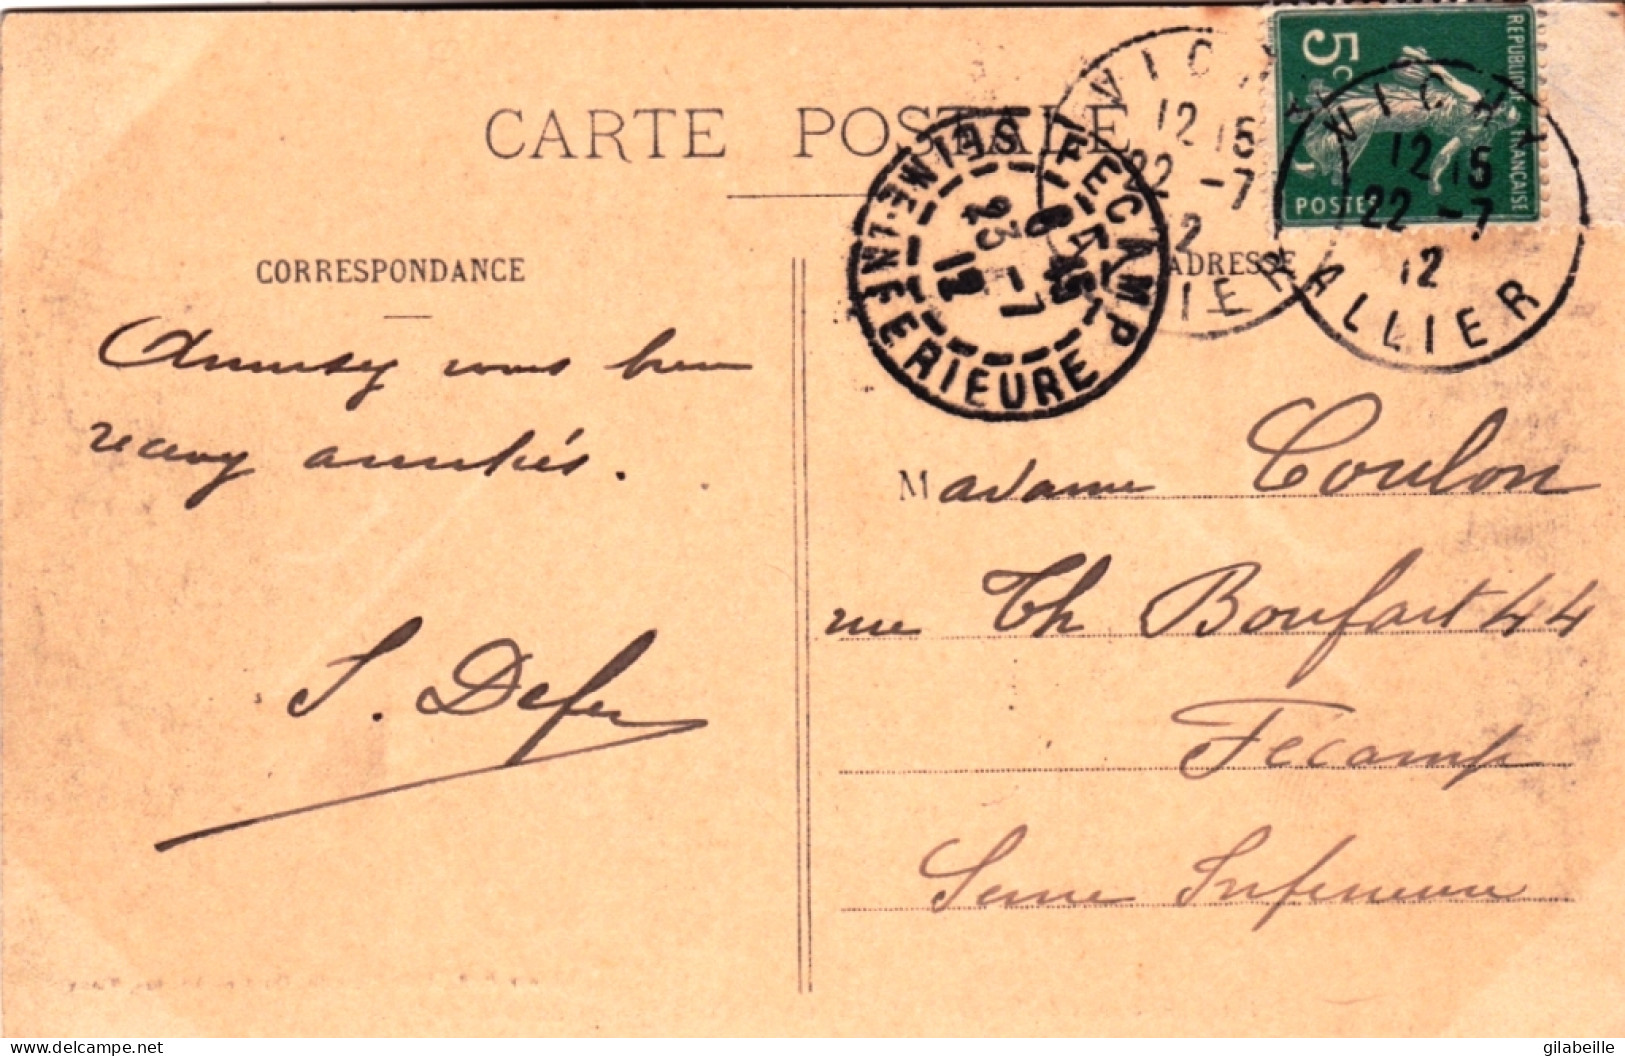 CARTE POSTALE
REPUBLIQUE FRANÇAISE
5c
POSTES
VICHY
12 15
22 -7
12
ALLIER
VICHY
12 15
22 -7
12
ALLIER
FECAMP
6 45
23 -7
12
SEINE-INFERIEURE
CORRESPONDANCE
ADRESSE
Amusez vous bien
recevez amitiés.
S. Defer
Madame Coulon
rue Th Boufart 44
Fecamp
Seine Inferieure
gilabeille
delcampe.net